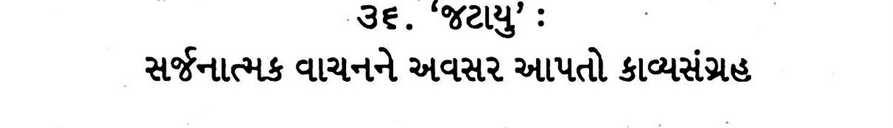 ૩૬. ‘જટાયુ’ :
સર્જનાત્મક વાચનને અવસર આપતો કાવ્યસંગ્રહ